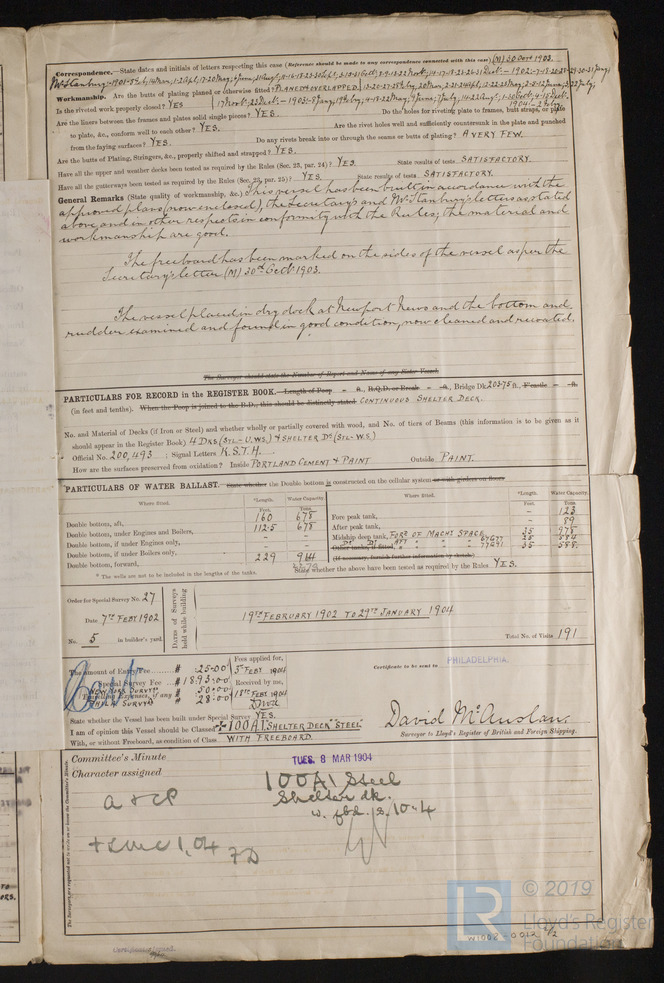 Correspondence.—State dates and initials of letters respecting this case (Reference should be made to any correspondence connected with this case) (M) 30 Oct. 1903.
Mr Stanbury:-1901-
Workmanship. Are the butts of plating planed or otherwise fitted PLANED & OVERLAPPED
Is the riveted work properly closed? YES
Are the liners between the frames and plates solid single pieces? YES. Do the holes for riveting plate to frames, butt straps, or plate
to plate, &c., conform well to each other? YES. Are the rivet holes well and sufficiently countersunk in the plate and punched
from the faying surfaces? YES. Do any rivets break into or through the seams or butts of plating? A VERY FEW.
Are the butts of Plating, Stringers, &c., properly shifted and strapped? YES.
Have all the upper and weather decks been tested as required by the Rules (Sec. 23, par. 24)? YES. State results of tests SATISFACTORY.
Have all the gutterways been tested as required by the Rules (Sec. 23, par. 25)? YES. State results of tests SATISFACTORY.
General Remarks (State quality of workmanship, &c.) This vessel has been built in accordance with the
approved plans (now enclosed), the Secretary's and Mr Stanbury's letters as stated
above, and in other respects in conformity with the Rules; the material and
workmanship are good.
The freeboard has been marked on the sides of the vessel as per the
Secretary's letter (M) 30th Octr. 1903.
The vessel placed in dry dock at Newport News and the bottom and
rudder examined and found in good condition, now cleaned and recoated.
The Surveyor should state the Number of Report and Name of any Sister Vessel.
PARTICULARS FOR RECORD in the REGISTER BOOK.—Length of Poop – ft., R.Q.D. or Break – ft., Bridge Dk 203.75 ft., F'castle – ft.
(in feet and tenths). When the Poop is joined to the B.D., this should be distinctly stated CONTINUOUS SHELTER DECK.
No. and Material of Decks (if Iron or Steel) and whether wholly or partially covered with wood, and No. of tiers of Beams (this information is to be given as it
should appear in the Register Book) 4 DKS (STL-U.W.S.) & SHELTER DK (STL-W.S.)
Official No. 200,493 ; Signal Letters K.S.T.H.
How are the surfaces preserved from oxidation? Inside PORTLAND CEMENT & PAINT Outside PAINT.
PARTICULARS OF WATER BALLAST.—State whether the Double bottom is constructed on the cellular system or with girders on floors
Where fitted. *Length. Water Capacity. Where fitted. *Length. Water Capacity.
Feet. Tons. Feet. Tons.
Double bottom, aft, 160 678 Fore peak tank, – 123
Double bottom, under Engines and Boilers, 112.5 678 After peak tank, – 89
Double bottom, if under Engines only, – Midship deep tank, FORD OF MACHY SPACE 35 978
Double bottom, if under Boilers only, – Other tanks, if fitted, AFT 584
Double bottom, forward, 229 914 (If necessary, furnish further information by sketch.) 35 588
* The wells are not to be included in the lengths of the tanks. State whether the above have been tested as required by the Rules YES.
Order for Special Survey No. 27
Date 7TH FEBY 1902
No. 5 in builder's yard.
DATES of Surveys held while building
19TH FEBRUARY 1902 TO 29TH JANUARY 1904
Total No. of Visits 191
The Amount of Entry Fee $ 25.00 Fees applied for, 5 FEBY 1904
Special Survey Fee $ 1893.00 Received by me,
NEW YORK SURVYR $ 50.00 18TH FEBY 1904
Travelling Expenses, if any PHILA SURVYR $ 28.00
Certificate to be sent to PHILADELPHIA.
State whether the Vessel has been built under Special Survey YES.
I am of opinion this Vessel should be Classed ✠100A1 "SHELTER DECK" "STEEL"
With, or without Freeboard, as condition of Class WITH FREEBOARD.
David McAuslan.
Surveyor to Lloyd's Register of British and Foreign Shipping.
Committee's Minute TUES. 8 MAR 1904
Character assigned 100A1 Steel
Shelter dk.
A & CP w. fbd.
+ LMC 1,04 FD
The Surveyors are requested not to write on or below the Committee's Minute.
© 2019
LR
Lloyd's Register
Foundation